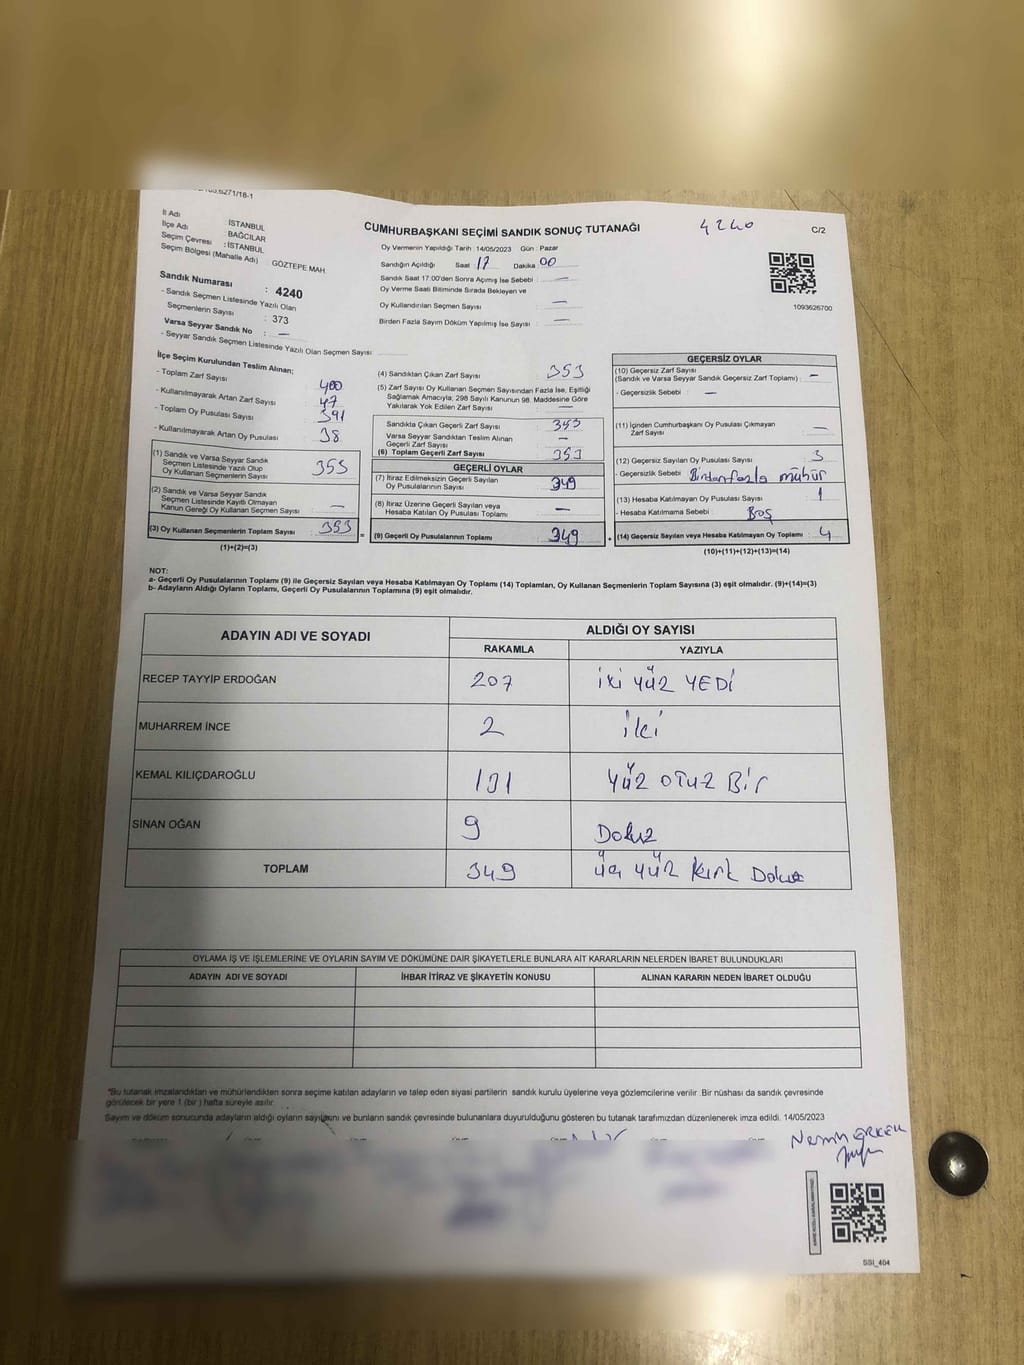 4240
C/2
İl Adı : İSTANBUL
İlçe Adı : BAĞCILAR
Seçim Çevresi : İSTANBUL
Seçim Bölgesi (Mahalle Adı) GÖZTEPE MAH
Sandık Numarası : 4240
- Sandık Seçmen Listesinde Yazılı Olan
Seçmenlerin Sayısı : 373
Varsa Seyyar Sandık No : —
- Seyyar Sandık Seçmen Listesinde Yazılı Olan Seçmen Sayısı:
CUMHURBAŞKANI SEÇİMİ SANDIK SONUÇ TUTANAĞI
Oy Vermenin Yapıldığı Tarih 14/05/2023 Gün : Pazar
Sandığın Açıldığı Saat 17 Dakika 00
Sandık Saat 17:00'den Sonra Açılmış İse Sebebi : —
Oy Verme Saati Bitiminde Sırada Bekleyen ve
Oy Kullandırılan Seçmen Sayısı : —
Birden Fazla Sayım Döküm Yapılmış İse Sayısı : —
1093626700
İlçe Seçim Kurulundan Teslim Alınan;
- Toplam Zarf Sayısı : 400
- Kullanılmayarak Artan Zarf Sayısı : 47
- Toplam Oy Pusulası Sayısı : 391
- Kullanılmayarak Artan Oy Pusulası : 38
(1) Sandık ve Varsa Seyyar Sandık
Seçmen Listesinde Yazılı Olup
Oy Kullanan Seçmenlerin Sayısı : 353
(2) Sandık ve Varsa Seyyar Sandık
Seçmen Listesinde Kayıtlı Olmayan
Kanun Gereği Oy Kullanan Seçmen Sayısı : —
(3) Oy Kullanan Seçmenlerin Toplam Sayısı : 353
(1)+(2)=(3)
(4) Sandıktan Çıkan Zarf Sayısı : 353
(5) Zarf Sayısı Oy Kullanan Seçmen Sayısından Fazla İse, Eşitliği
Sağlamak Amacıyla; 298 Sayılı Kanunun 98. Maddesine Göre
Yakılarak Yok Edilen Zarf Sayısı : —
Sandıkta Çıkan Geçerli Zarf Sayısı : 353
Varsa Seyyar Sandıktan Teslim Alınan
Geçerli Zarf Sayısı : —
(6) Toplam Geçerli Zarf Sayısı : 353
GEÇERLİ OYLAR
(7) İtiraz Edilmeksizin Geçerli Sayılan
Oy Pusulalarının Sayısı : 349
(8) İtiraz Üzerine Geçerli Sayılan veya
Hesaba Katılan Oy Pusulası Toplamı : —
(9) Geçerli Oy Pusulalarının Toplamı : 349
GEÇERSİZ OYLAR
(10) Geçersiz Zarf Sayısı
(Sandık ve Varsa Seyyar Sandık Geçersiz Zarf Toplamı) : —
- Geçersizlik Sebebi : —
(11) İçinden Cumhurbaşkanı Oy Pusulası Çıkmayan
Zarf Sayısı : —
(12) Geçersiz Sayılan Oy Pusulası Sayısı : 3
- Geçersizlik Sebebi : Birden fazla mühür
(13) Hesaba Katılmayan Oy Pusulası Sayısı : 1
- Hesaba Katılmama Sebebi : Boş
(14) Geçersiz Sayılan veya Hesaba Katılmayan Oy Toplamı : 4
(10)+(11)+(12)+(13)=(14)
NOT:
a- Geçerli Oy Pusulalarının Toplamı (9) ile Geçersiz Sayılan veya Hesaba Katılmayan Oy Toplamı (14) Toplamları, Oy Kullanan Seçmenlerin Toplam Sayısına (3) eşit olmalıdır. (9)+(14)=(3)
b- Adayların Aldığı Oyların Toplamı, Geçerli Oy Pusulalarının Toplamına (9) eşit olmalıdır.
ADAYIN ADI VE SOYADI
ALDIĞI OY SAYISI
RAKAMLA YAZIYLA
RECEP TAYYİP ERDOĞAN 207 iki yüz YEDİ
MUHARREM İNCE 2 iki
KEMAL KILIÇDAROĞLU 131 yüz otuz Bir
SİNAN OĞAN 9 Dokuz
TOPLAM 349 üç yüz kırk Dokuz
OYLAMA İŞ VE İŞLEMLERİNE VE OYLARIN SAYIM VE DÖKÜMÜNE DAİR ŞİKAYETLERLE BUNLARA AİT KARARLARIN NELERDEN İBARET BULUNDUKLARI
ADAYIN ADI VE SOYADI İHBAR İTİRAZ VE ŞİKAYETİN KONUSU ALINAN KARARIN NEDEN İBARET OLDUĞU
*Bu tutanak imzalandıktan ve mühürlendikten sonra seçime katılan adayların ve talep eden siyasi partilerin sandık kurulu üyelerine veya gözlemcilerine verilir. Bir nüshası da sandık çevresinde
görülecek bir yere 1 (bir) hafta süreyle asılır.
Sayım ve döküm sonucunda adayların aldığı oyların sayılarını ve bunların sandık çevresinde bulunanlara duyurulduğunu gösteren bu tutanak tarafımızdan düzenlenerek imza edildi. 14/05/2023
SSI_404